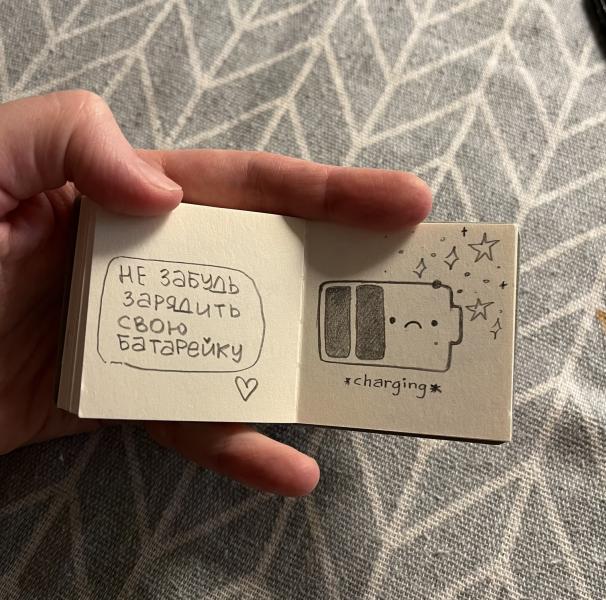 НЕ ЗАБУДЬ
ЗАРЯДИТЬ
СВОЮ
БАТАРЕЙКУ
*charging*